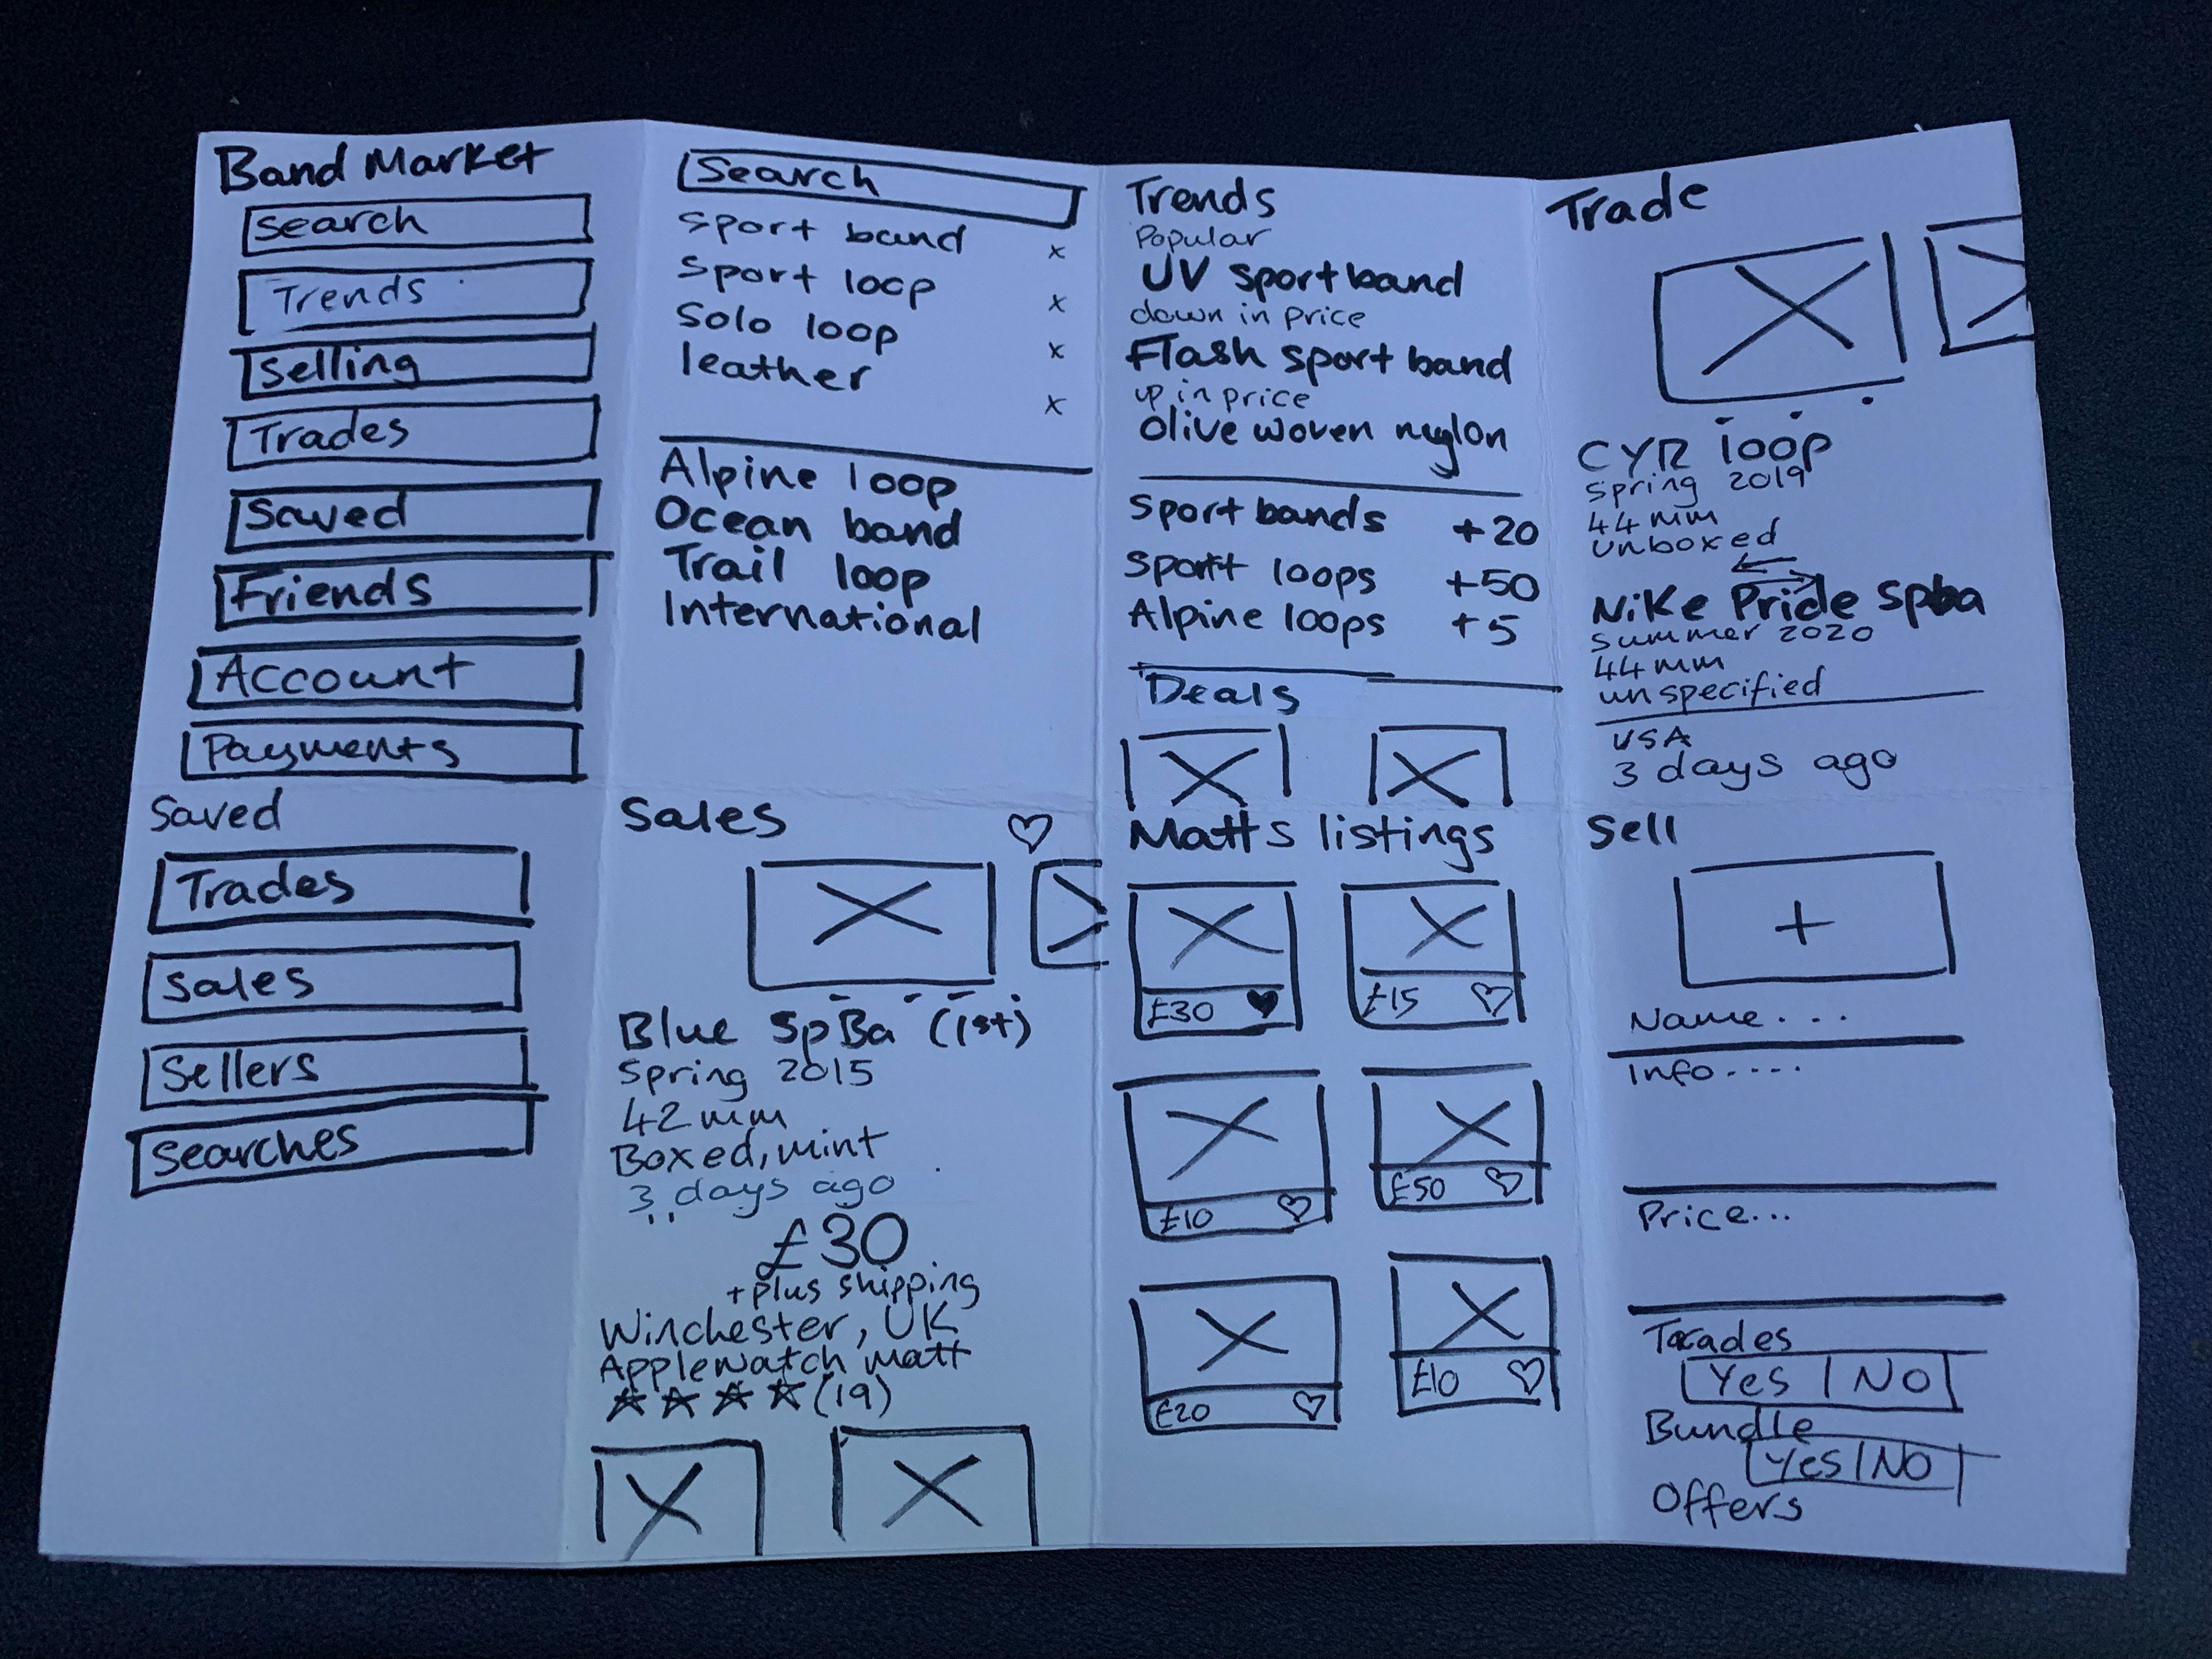 Band Market
search
Trends
selling
Trades
Saved
Friends
Account
Payments
Search
sport band x
sport loop x
solo loop x
leather x
Alpine loop
Ocean band
Trail loop
International
Trends
Popular
UV sport band
down in price
Flash sport band
up in price
Olive woven nylon
Sport bands +20
Sport loops +50
Alpine loops +5
Deals
Trade
CYR loop
spring 2019
44mm
unboxed
Nike Pride spba
summer 2020
44mm
unspecified
USA
3 days ago
Saved
Trades
Sales
Sellers
Searches
Sales
Blue SpBa (1st)
Spring 2015
42mm
Boxed, mint
3 days ago
£30
+plus shipping
Winchester, UK
Applewatch matt
(19)
Matts listings
£30
£15
£10
£50
£20
£10
Sell
+
Name...
Info....
Price...
Trades
Yes | No
Bundle
Yes | No
Offers